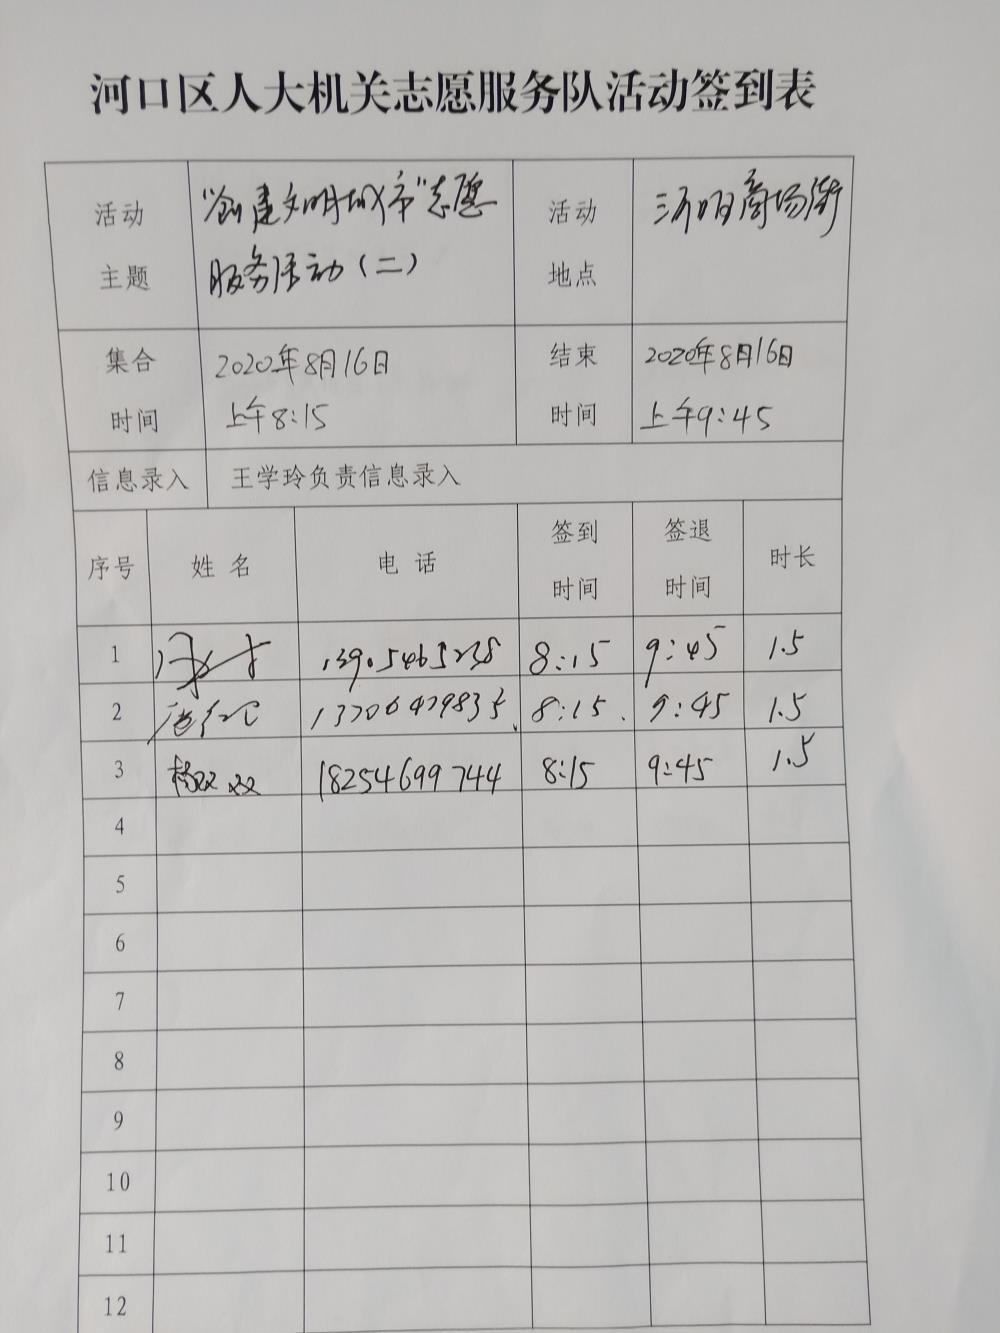 河口区人大机关志愿服务队活动签到表
活动主题 "创建文明城市"志愿服务活动（二） 活动地点 商场街
集合时间 2020年8月16日 上午8:15 结束时间 2020年8月16日 上午9:45
信息录入 王学玲负责信息录入
序号 姓名 电话 签到时间 签退时间 时长
1 13905465238 8:15 9:45 1.5
2 8:15 9:45 1.5
3 杨双双 18254699744 8:15 9:45 1.5
4
5
6
7
8
9
10
11
12